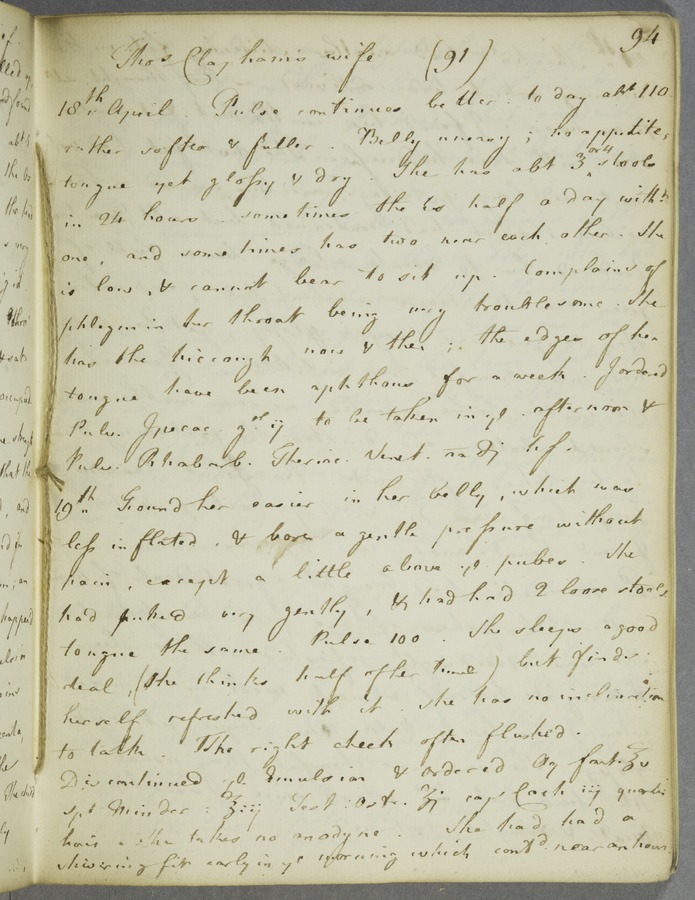 94
Thos Claphams wife (91)
18th April. Pulse continues better: to day abt 110
rather softer & fuller. Belly uneasy; no appetite,
tongue yet glossy & dry. She has abt 3 or 4 stools
in 24 hours. sometimes she is half a day witht
one, and sometimes has two near each other. She
is low, & cannot bear to sit up. Complains of
phlegm in her throat being very troublesome. She
has the hiccough now & then; the edges of her
tongue have been aphthous for a week. I ordered
Pulv. Ipecac. gr ij to be taken in ye. afternoon &
Pulv. Rhabarb. Theriac. Venet. a a Э h.s.
19th I found her easier in her belly, which was
less inflated, & bore a gentle pressure without
pain, except a little above ye. pubes. She
had puked very gently, & had had 2 loose stools,
tongue the same. Pulse 100. She sleeps a good
deal, (she thinks half of her time) but finds
herself refreshed with it. She has no inclination
to talk. The right cheek often flushed.
Discontinued ye. Emulsion & ordered Aq font. ℥v
spt Minder: ℥iij Test: Ostr. ʒj cap. Coch iij quartis
horis. She takes no anodyne. She had had a
shivering fit early in ye morning which contd. near an hour.